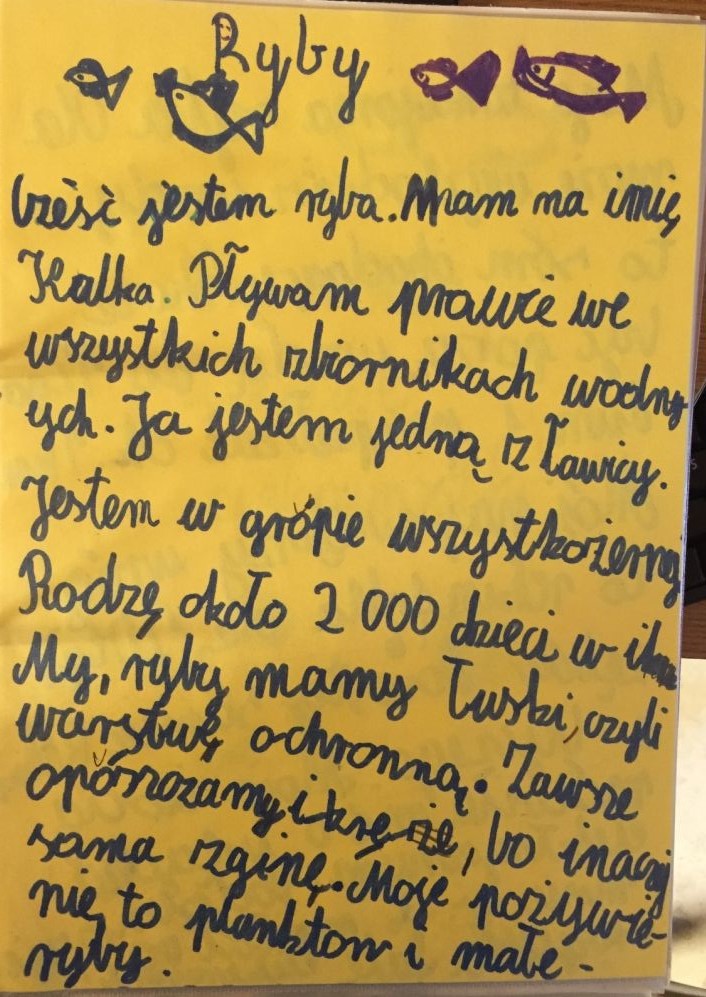 Ryby
Cześć jestem ryba. Mam na imię
Kalka. Pływam prawie we
wszystkich zbiornikach wodny-
ych. Ja jestem jedną z ławicy.
Jestem w grópie wszystkożerną
Rodzę około 2 000 dzieci w
My, ryby mamy łuski, czyli
warstwę ochronną. Zawsze
opószczamy, bo inaczej
sama zginę. Moje pożywie-
nie to plankton i małe-
ryby.